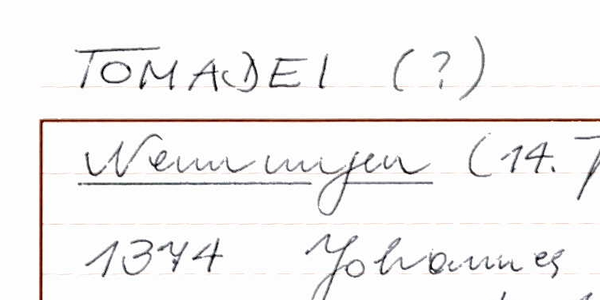 TOMADEI (?)
Nenningen (14.
1374 Johannes